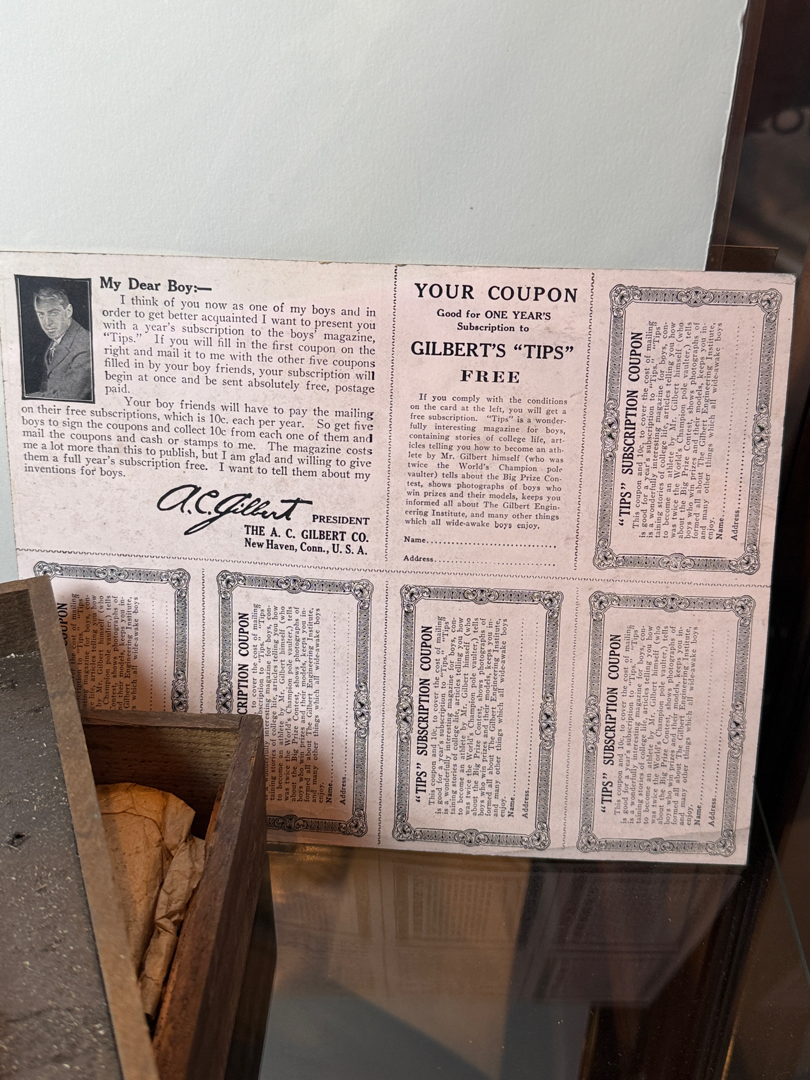 My Dear Boy:—
I think of you now as one of my boys and in
order to get better acquainted I want to present you
with a year's subscription to the boys' magazine,
"Tips." If you will fill in the first coupon on the
right and mail it to me with the other five coupons
filled in by your boy friends, your subscription will
begin at once and be sent absolutely free, postage
paid.
Your boy friends will have to pay the mailing
on their free subscriptions, which is 10c. each per year. So get five
boys to sign the coupons and collect 10c from each one of them and
mail the coupons and cash or stamps to me. The magazine costs
me a lot more than this to publish, but I am glad and willing to give
them a full year's subscription free. I want to tell them about my
inventions for boys.
A.C. Gilbert
PRESIDENT
THE A. C. GILBERT CO.
New Haven, Conn., U. S. A.
YOUR COUPON
Good for ONE YEAR'S
Subscription to
GILBERT'S "TIPS"
FREE
If you comply with the conditions
on the card at the left, you will get a
free subscription. "Tips" is a wonder-
fully interesting magazine for boys,
containing stories of college life, art-
icles telling you how to become an ath-
lete by Mr. Gilbert himself (who was
twice the World's Champion pole
vaulter) tells about the Big Prize Con-
test, shows photographs of boys who
win prizes and their models, keeps you
informed all about The Gilbert Engin-
eering Institute, and many other things
which all wide-awake boys enjoy.
Name
Address
"TIPS" SUBSCRIPTION COUPON
This coupon and 10c, to cover the cost of mailing
is good for a year's subscription to "Tips." "Tips"
is a wonderfully interesting magazine for boys, con-
taining stories of college life, articles telling you how
to become an athlete by Mr. Gilbert himself (who
was twice the World's Champion pole vaulter,) tells
about the Big Prize Contest, shows photographs of
boys who win prizes and their models, keeps you in-
formed all about The Gilbert Engineering Institute,
and many other things which all wide-awake boys
enjoy.
Name
Address
COUPON
of mailing
"Tips." "Tips"
for boys, con-
telling you how
himself (who
vaulter,) tells
photographs of
keeps you in-
Institute,
which all wide-awake boys
SUBSCRIPTION COUPON
10c, to cover the cost of mailing
subscription to "Tips." "Tips"
interesting magazine for boys, con-
taining stories of college life, articles telling you how
to become an athlete by Mr. Gilbert himself (who
was twice the World's Champion pole vaulter,) tells
about the Big Prize Contest, shows photographs of
boys who win prizes and their models, keeps you in-
formed all about The Gilbert Engineering Institute,
and many other things which all wide-awake boys
enjoy.
Name
Address
"TIPS" SUBSCRIPTION COUPON
This coupon and 10c, to cover the cost of mailing
is good for a year's subscription to "Tips." "Tips"
is a wonderfully interesting magazine for boys, con-
taining stories of college life, articles telling you how
to become an athlete by Mr. Gilbert himself (who
was twice the World's Champion pole vaulter,) tells
about the Big Prize Contest, shows photographs of
boys who win prizes and their models, keeps you in-
formed all about The Gilbert Engineering Institute,
and many other things which all wide-awake boys
enjoy.
Name
Address
"TIPS" SUBSCRIPTION COUPON
This coupon and 10c, to cover the cost of mailing
is good for a year's subscription to "Tips." "Tips"
is a wonderfully interesting magazine for boys, con-
taining stories of college life, articles telling you how
to become an athlete by Mr. Gilbert himself (who
was twice the World's Champion pole vaulter,) tells
about the Big Prize Contest, shows photographs of
boys who win prizes and their models, keeps you in-
formed all about The Gilbert Engineering Institute,
and many other things which all wide-awake boys
enjoy.
Name
Address